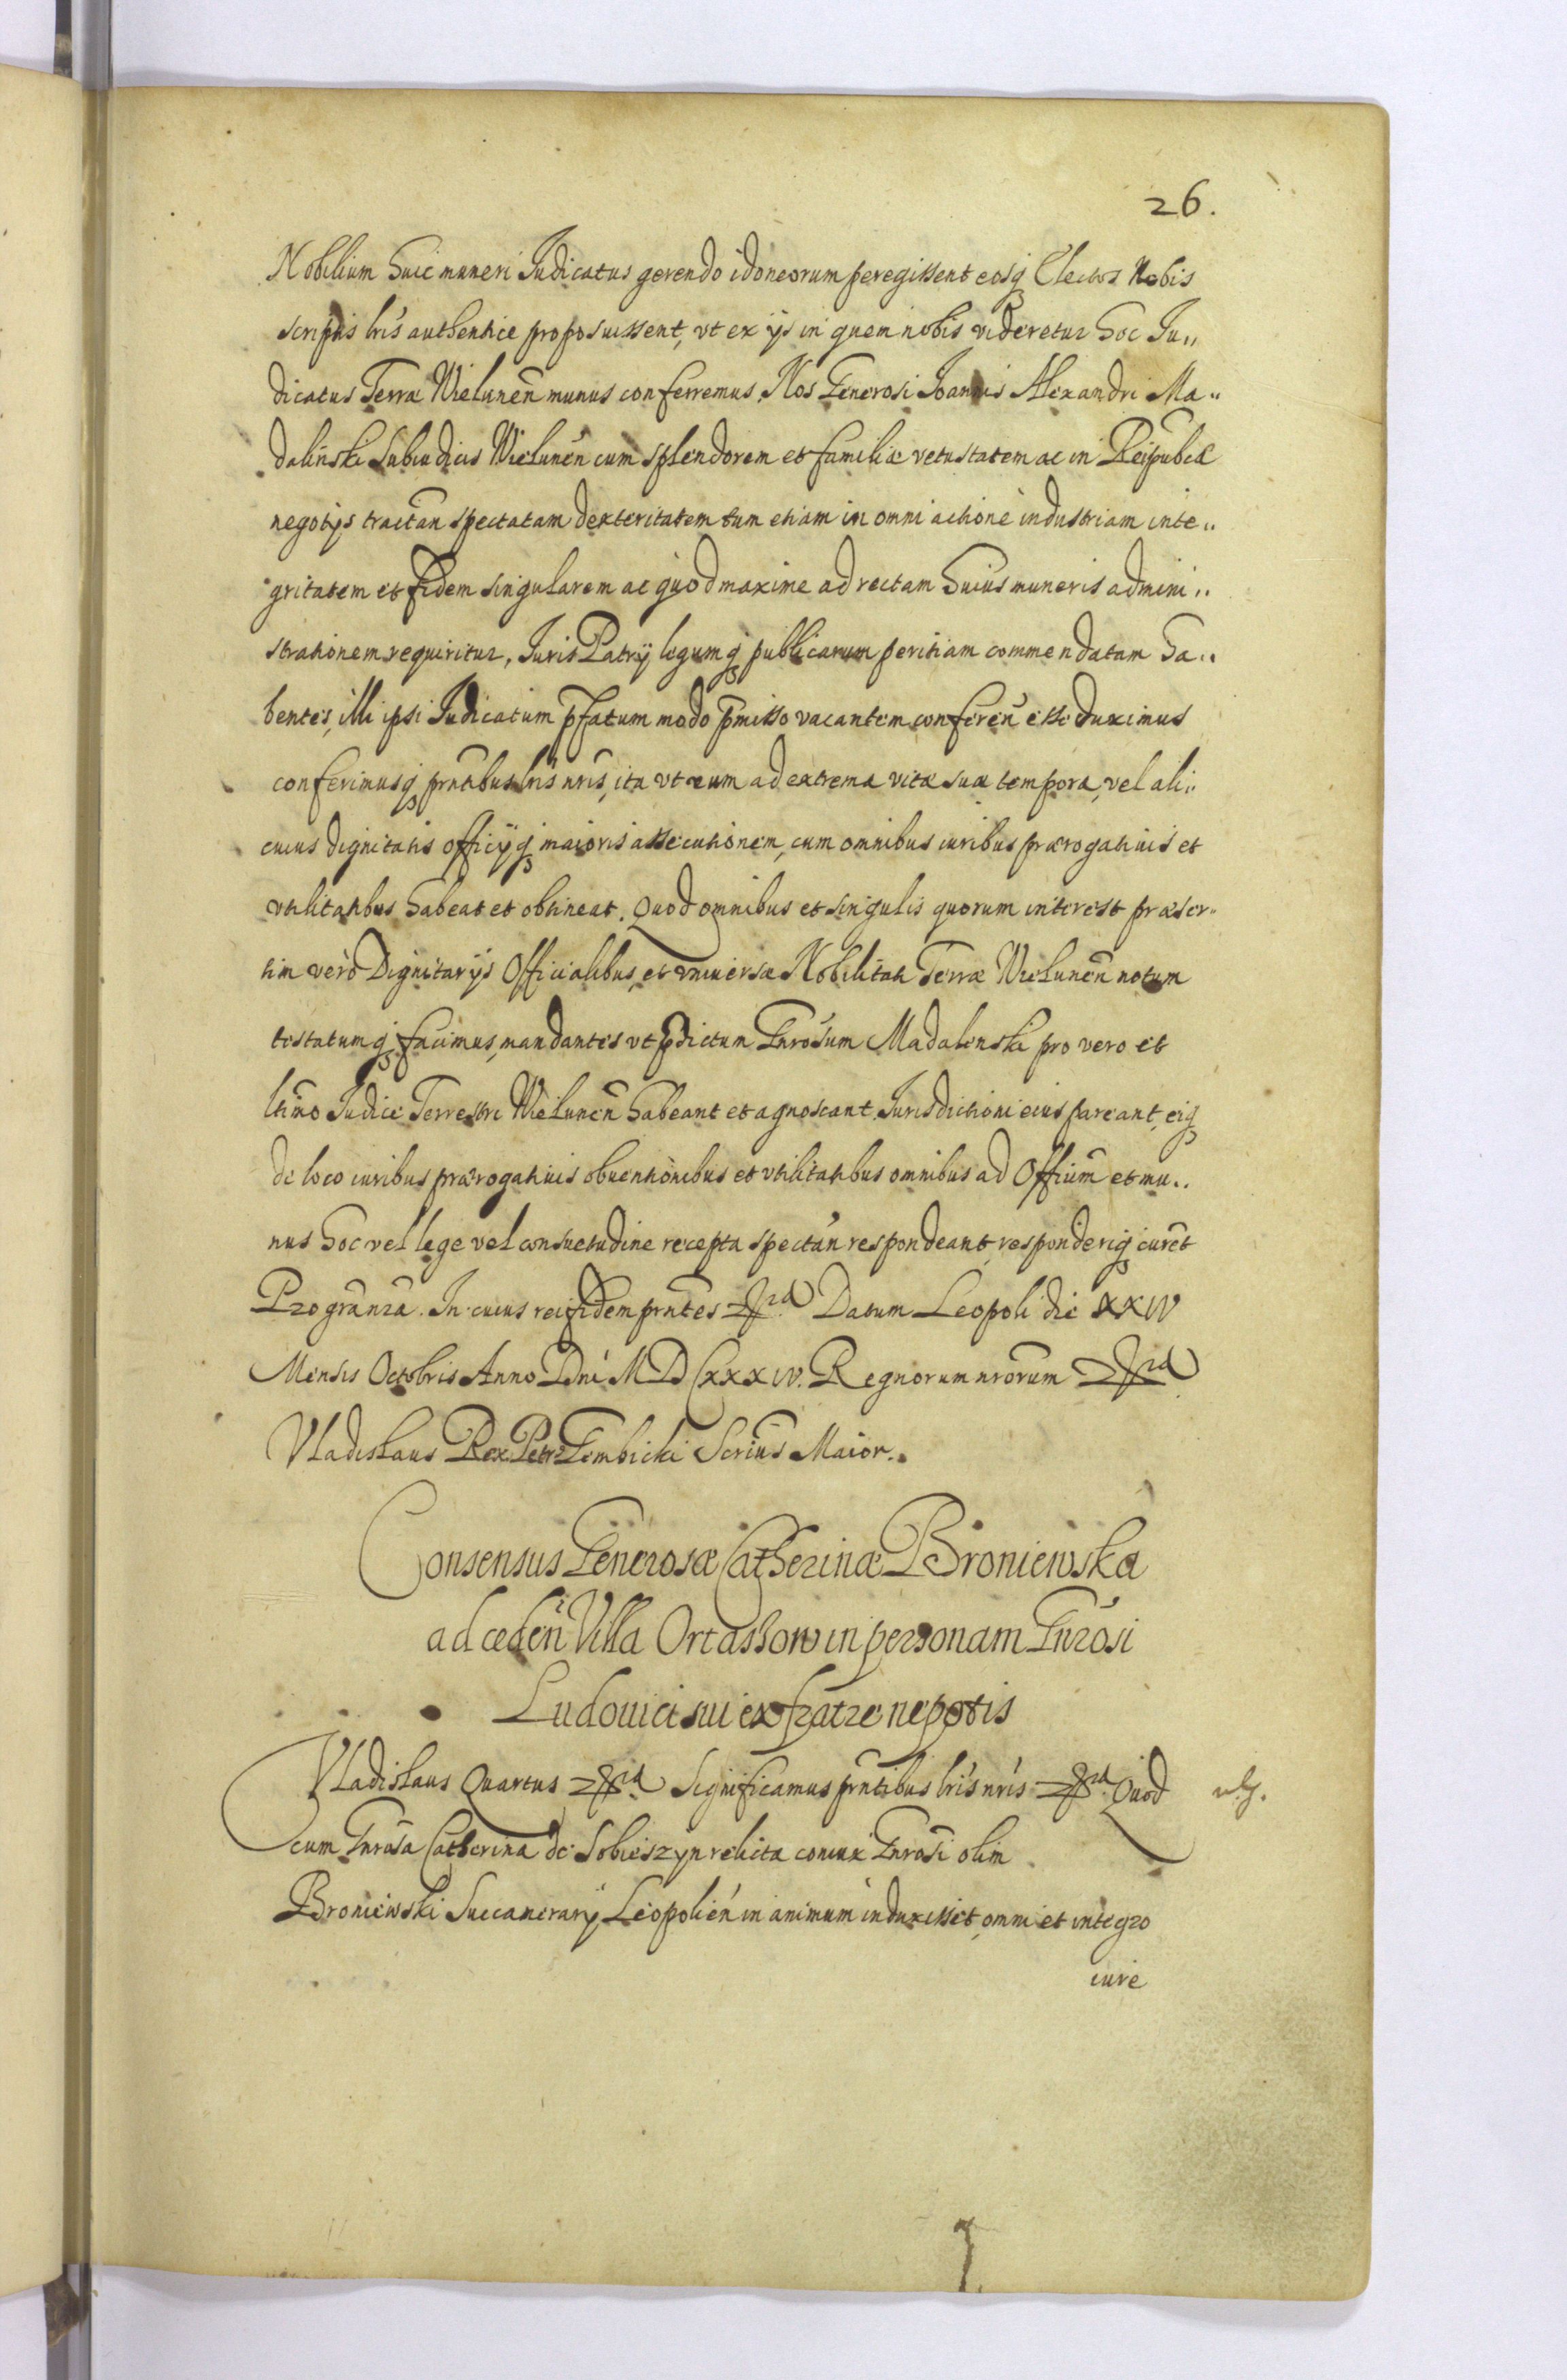 26.
Nobilium huic muneri Iudicatus gerendo idoneorum peregissent eosq Electos Nobis
scriptis lris authentice proposuissent, vt ex ijs in quem nobis videretur hoc Iu„
dicatus Terræ Wielunen munus conferremus. Nos Generosi Joannis Alexandri Ma„
dalinski Subiudicis Wielunen cum splendorem et familiæ vetustatem ac in Reipubcæ
negotijs tractan spectatam dexteritatem tum etiam in omni actione industriam inte„
gritatem et fidem singularem ac quod maxime ad rectam huius muneris admini„
strationem requiritur, Iuris Patrij legumq publicarum peritiam commendatam ha„
bentes, illi ipsi Iudicatum pfatum modo pmisso vacantem conferen esse duximus
conferimusq prntibus lris nris, ita vt eum ad extrema vitæ suæ tempora, vel ali„
cuius dignitatis officijq maioris assecutionem, cum omnibus iuribus prærogatiuis et
vtilitatibus habeat et obtineat. Quod omnibus et singulis quorum interest præser„
tim vero Dignitarijs Officialibus, et vniuersæ Nobilitati Terræ Wielunen notum
testatumq facimus, mandantes vt pdictum Gnrosum Madalenski pro vero et
ltimo Iudice Terrestri Wielunen habeant et agnoscant. Iurisdictioni eius pareant, eiq
de loco iuribus prærogatiuis obuentionibus et vtilitatibus omnibus ad Officium et mu„
nus hoc vel lege vel consuetudine recepta spectan respondeant, responderiq curent
Pro gra nra. In cuius rei fidem prntes Datum Leopoli die XXIV
Mensis Octobris Anno Dni MDCXXXIV. Regnorum nrorum
Vladislaus Rex. Petr Gembicki Secrius Maior.
Consensus Generosæ Catherinæ Broniewska
ad ceden Villa Ortashow in personam Gnrosi
Ludouici sui ex fratre nepotis
Vladislaus Quartus Significamus prntibus lris nris Quod
cum Gnrosa Catherina de Sobieszyn relicta coniux Gnrosi olim
Broniewski Succamerarij Leopolien in animum induxisset, omni et integro
iure